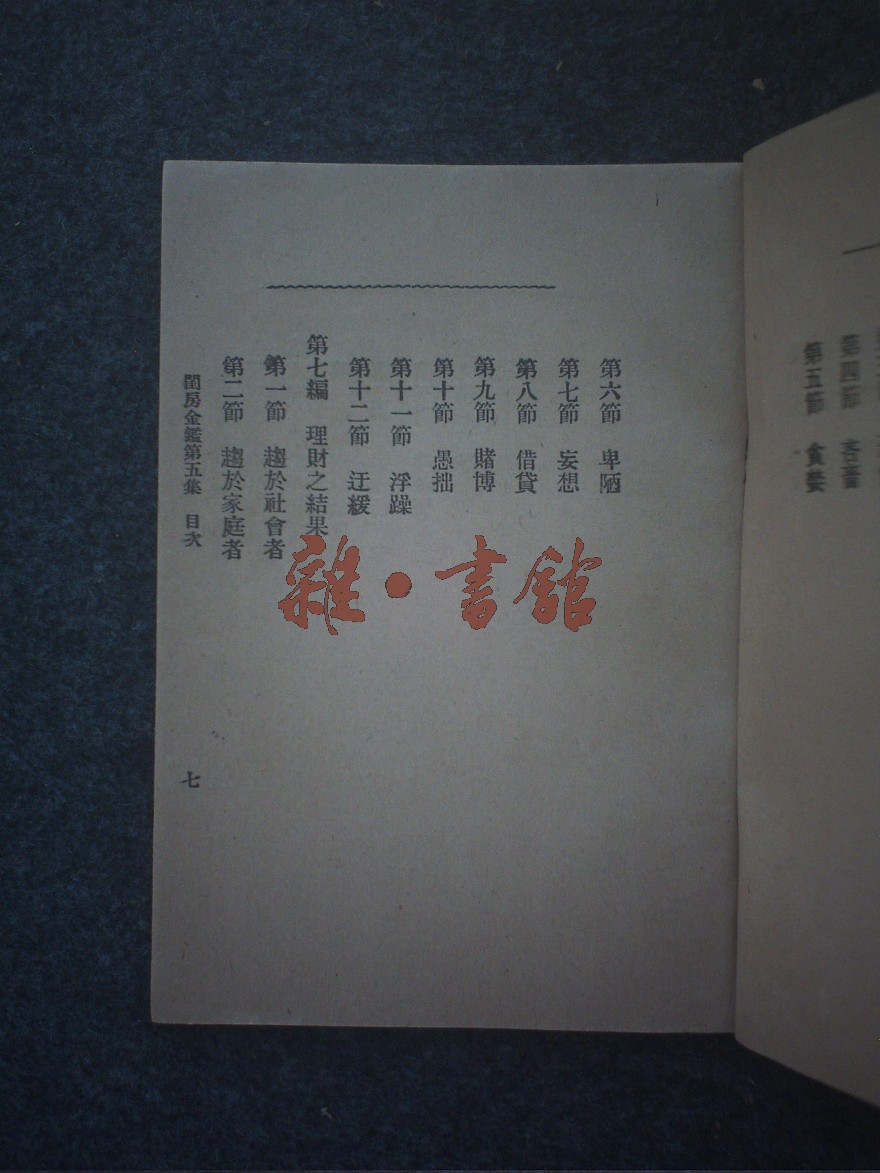 第四節　吝嗇
第五節　貪婪
第六節　卑陋
第七節　妄想
第八節　借貸
第九節　賭博
第十節　愚拙
第十一節　浮躁
第十二節　迂緩
第七編　理財之結果
第一節　趨於社會者
第二節　趨於家庭者
閨房金鑑第五集　目次
七
雜·書館